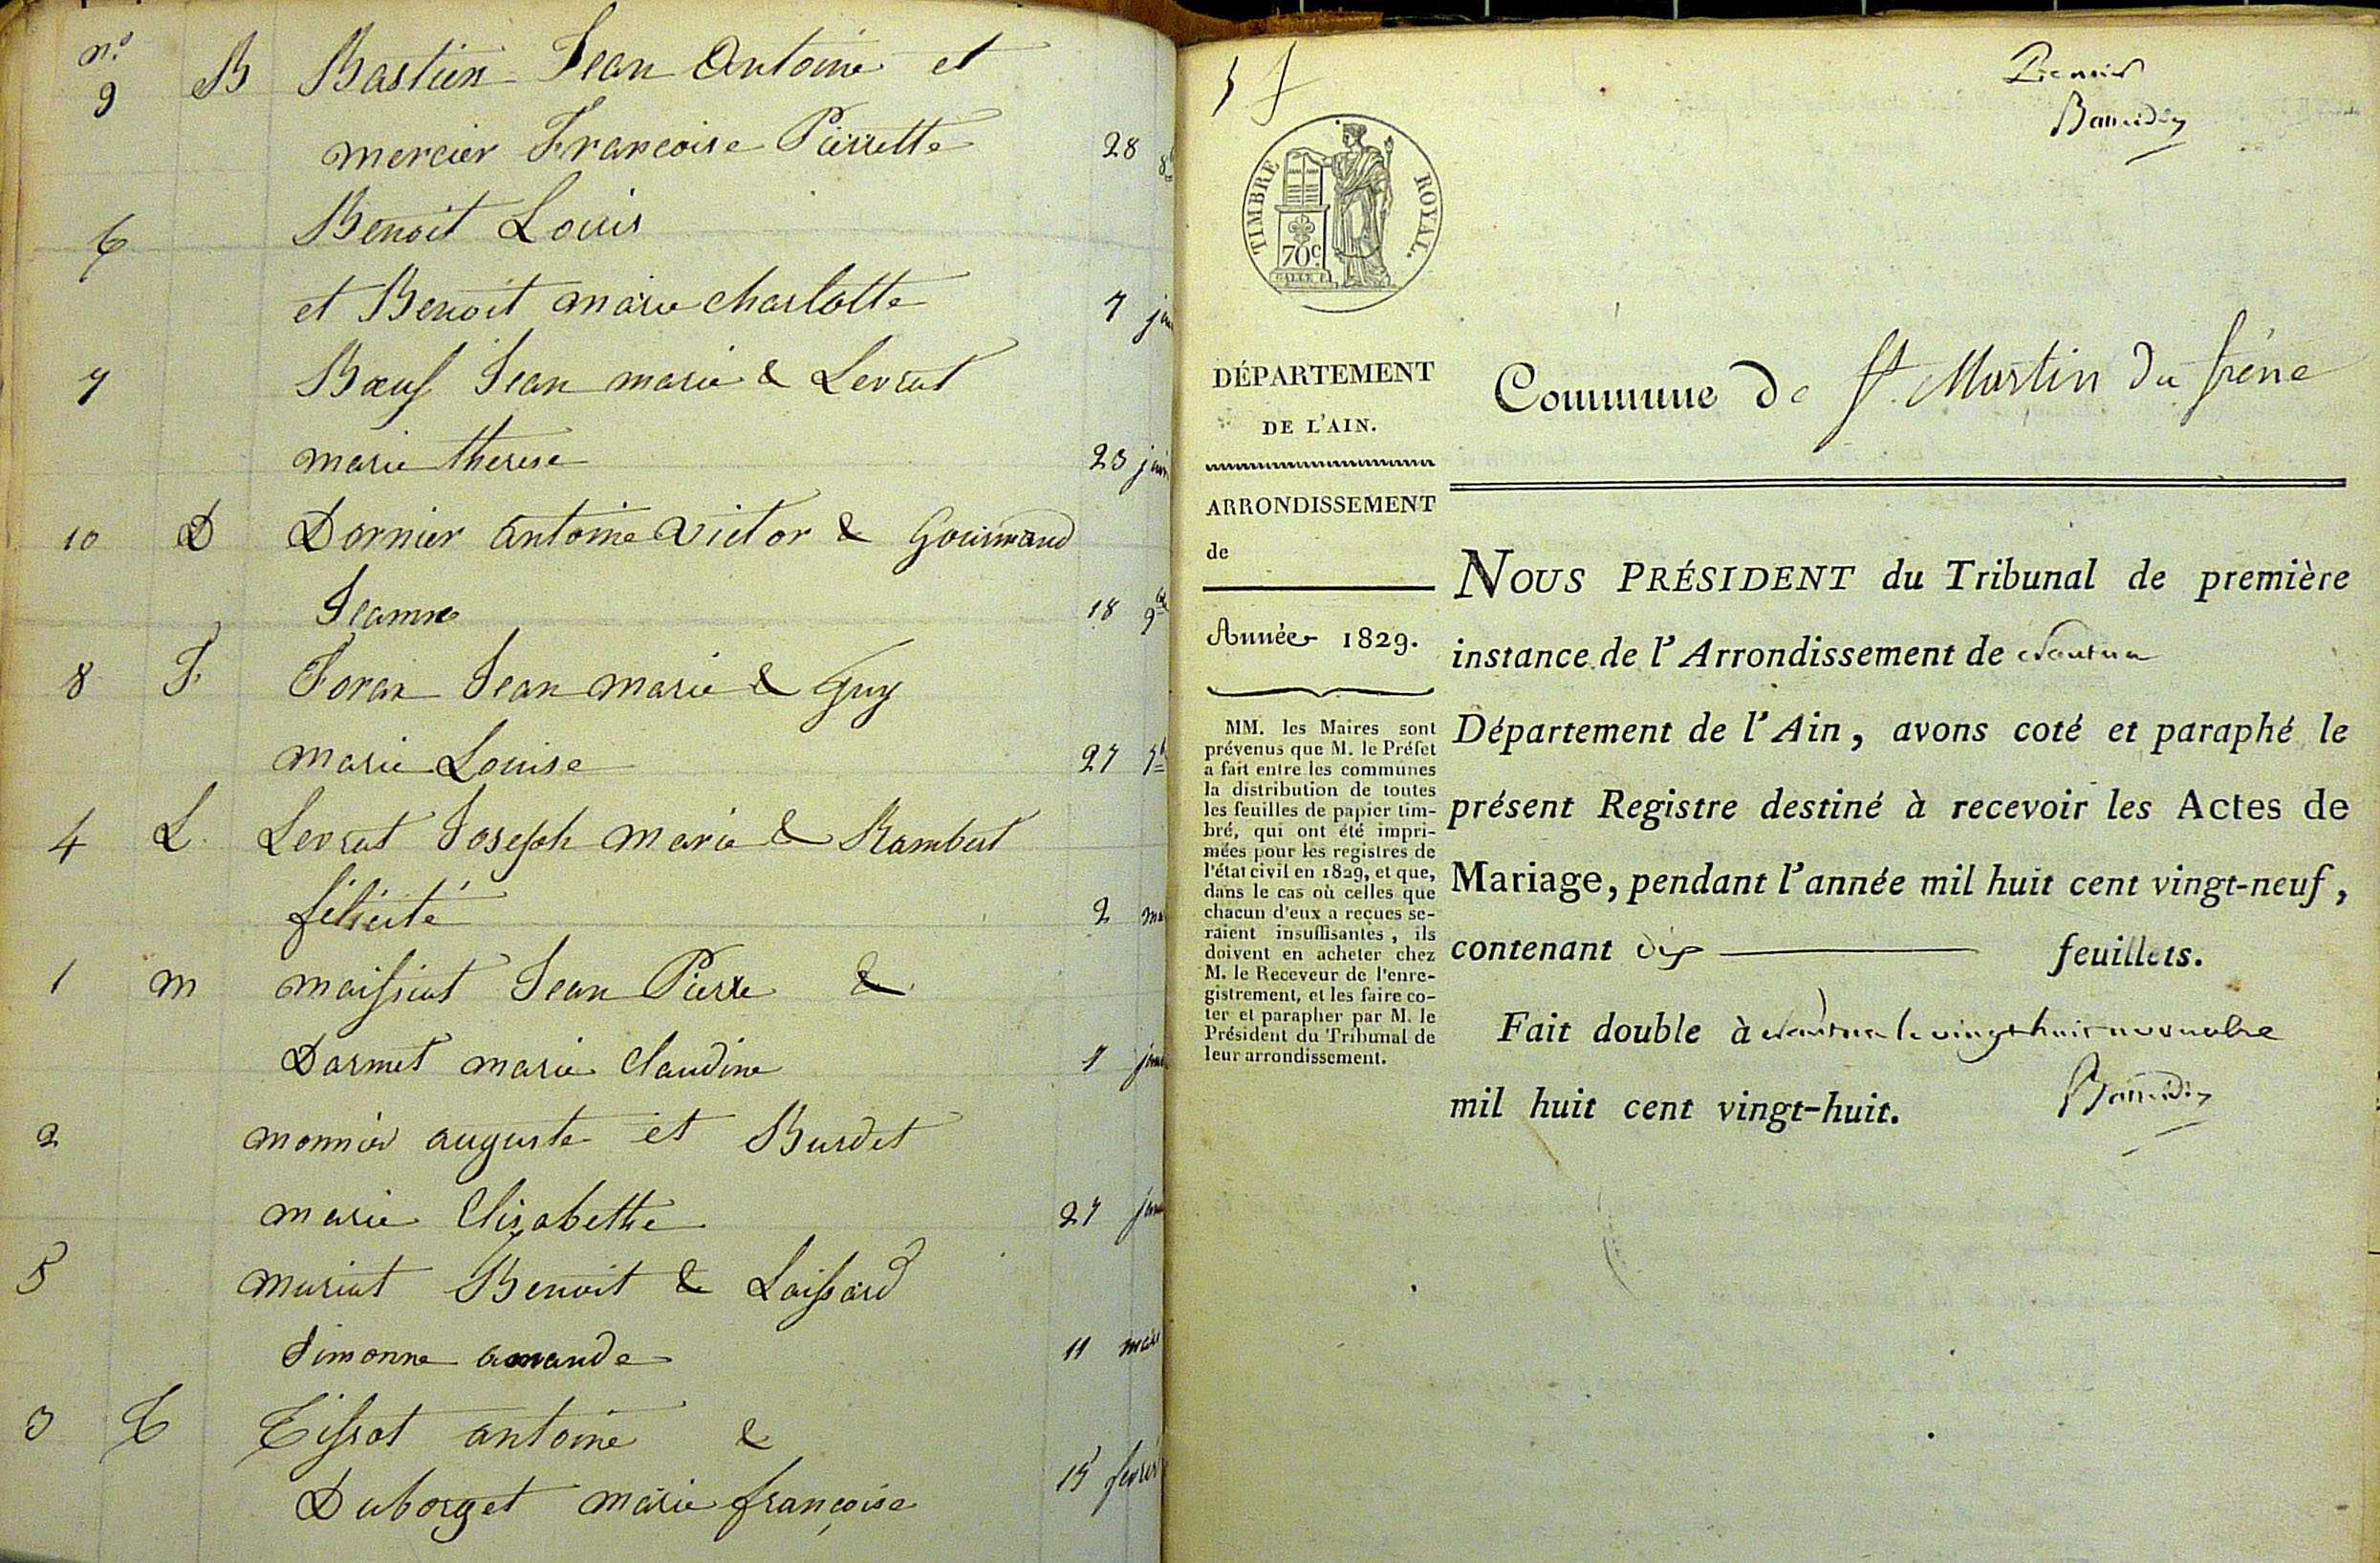 n.o
9 B Bastien Jean Antoine et
mercier Francoise Pierrette 28 8
6 Benoit Louis
et Benoit marie charlotte 7
7 Bœuf Jean marie & Levrat
marie therese 23 juin
10 D Dornier antoine Victor & Gourmand
Jeanne 18 9
8 F Foran Jean marie & Guy
marie Louise 27 7
4 L. Levrat Joseph marie & Rambert
félicité 2
1 m maissiat Jean Pierre &
Darmet marie claudine 7
2 monnier auguste et Burdet
marie Elisabethe 27
5 muriat Benoit & Laissard
Simonne amande 11
3 T Tissot antoine &
Duborget marie françoise 15
Premier
TIMBRE ROYAL.
70c
DÉPARTEMENT
DE L'AIN.
ARRONDISSEMENT
de
Année 1829.
MM. les Maires sont
prévenus que M. le Préfet
a fait entre les communes
la distribution de toutes
les feuilles de papier tim-
bré, qui ont été impri-
mées pour les registres de
l'état civil en 1829, et que,
dans le cas où celles que
chacun d'eux a reçues se-
raient insuffisantes, ils
doivent en acheter chez
M. le Receveur de l'enre-
gistrement, et les faire co-
ter et parapher par M. le
Président du Tribunal de
leur arrondissement.
Commune de St. Martin du frêne
NOUS PRÉSIDENT du Tribunal de première
instance de l'Arrondissement de Nantua
Département de l'Ain, avons coté et paraphé le
présent Registre destiné à recevoir les Actes de
Mariage, pendant l'année mil huit cent vingt-neuf,
contenant dix feuillets.
Fait double à Nantua le vingt huit novembre
mil huit cent vingt-huit.